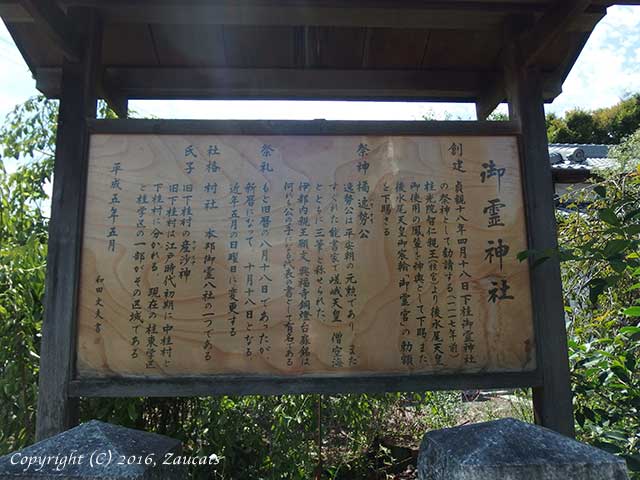 御霊神社
創建 貞観十八年四月十八日下桂御霊神社
の祭神として勧請する(一一一七年前)
桂光院智仁親王在をより後水尾天皇
御使用の鳳輦を神輿として下賜 また
後水尾天皇御宸翰「御霊宮」の勅額
を下賜さる
祭神 橘逸勢公
逸勢公は平安朝の元老であり また
すぐれた能書家で嵯峨天皇 僧空海
とともに三筆と称せられた
伊都内親王願文 興福寺銅燈台扉銘は
何れも公の手になる代表の書として有名である
祭礼 もと旧暦の八月十八日であったが
新暦になって、十月十八日となる
近年五月四日曜日に変更する
社格 村社 本邦御霊八社の一つである
氏子 旧下桂村の産沙神
旧下桂村は江戸時代初期に中桂村と
下桂村に分かれる 現在の桂東学区
と桂学区の一部がその区域である
平成五年五月
和田文夫書
Copyright (C) 2016, Zaucats